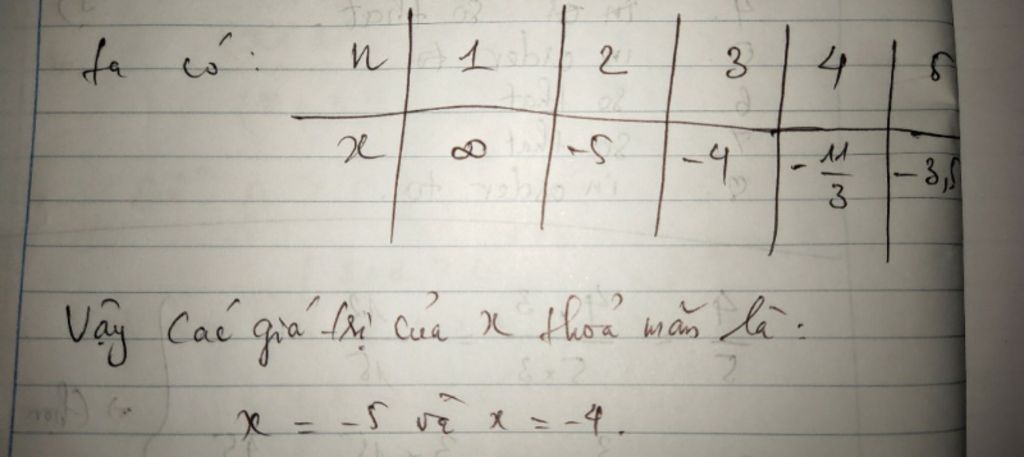 Ta có: n 1 2 3 4 5
x ∞ -5 -4 -11/3 -3,5
Vậy các giá trị của x thoả mãn là:
x = -5 và x = -4.